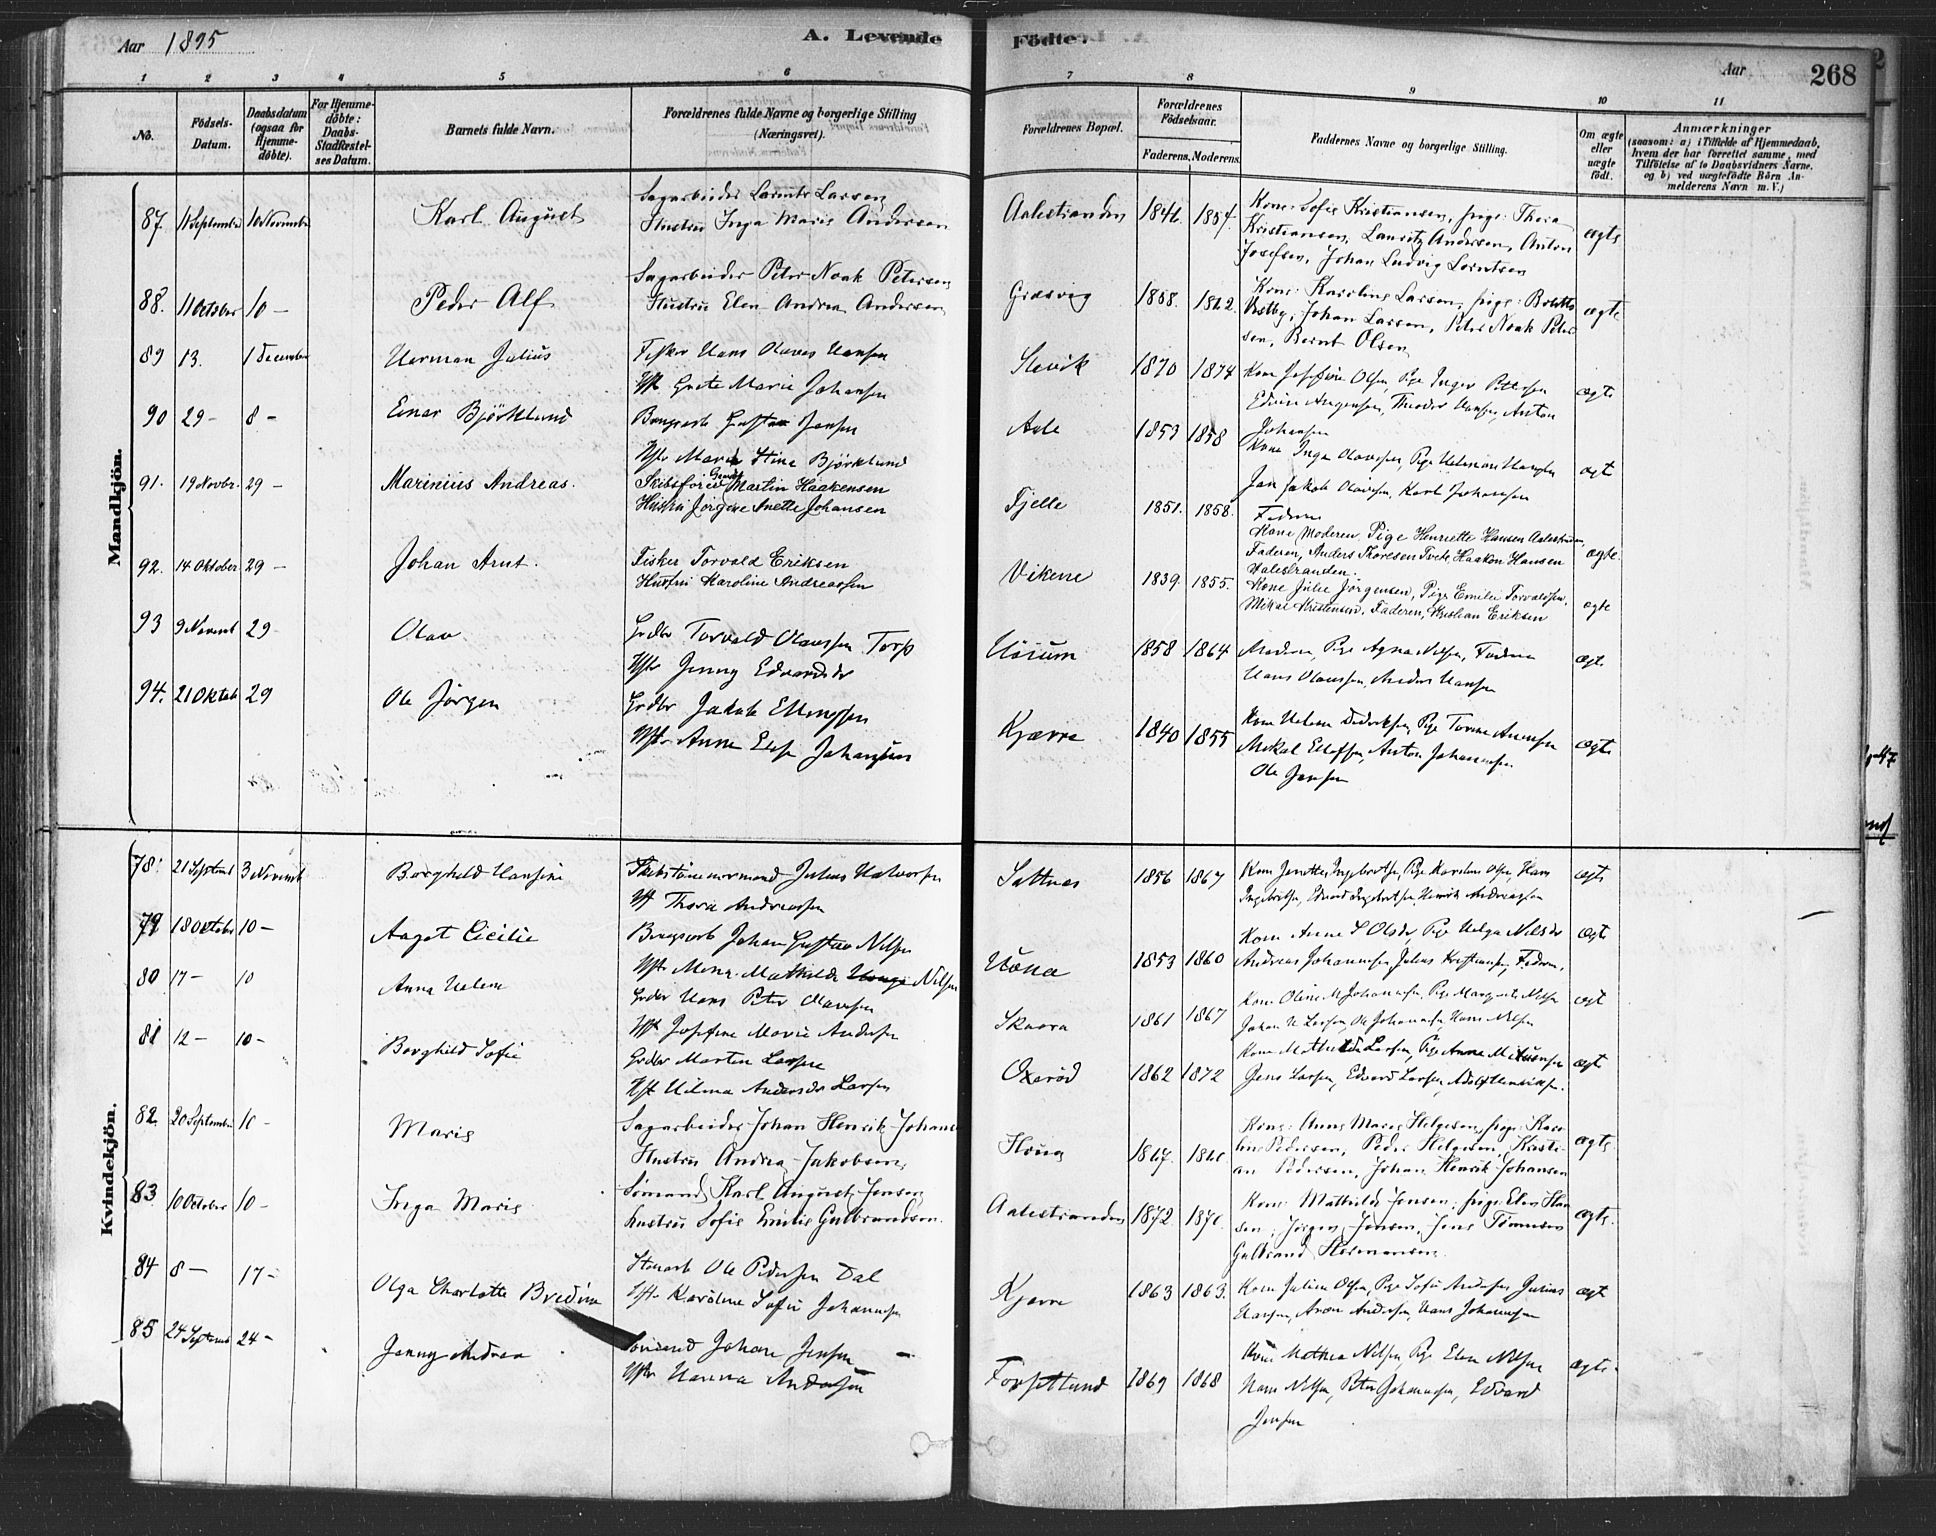 Aar 1895
A. Levende
Födte.
Aar
268
1 2 3 4 5 6 7 8 9 10 11
No.
Födsels-Datum.
Daabsdatum (ogsaa for Hjemme-döbte).
For Hjemme-döbte: Daabs-Stadfæstel-ses Datum.
Barnets fulde Navn.
Forældrenes fulde Navne og borgerlige Stilling (Næringsvei).
Forældrenes Bopæl.
Forældrenes Födselsaar.
Faderens.
Moderens.
Faddernes Navne og borgerlige Stilling.
Om ægte eller uægte födt.
Anmærkninger
(saasom: a) i Tilfælde af Hjemmedaab,
hvem der har forrettet samme, med
Tilföielse af to Daabsvidners Navne,
og b) ved uægtefödte Börn An-
melderens Navn m. V.)
Mandkjön.
87. 11 September 10 November Karl August
Sagarbeider Larents Larsen
Hustru Inga Marie Andersen
Aalestranden 1846. 1854.
Kone: Sofie Kristiansen, pige: Thora
Kristiansen, Lauritz Andersen, Anton
Josefsen, Johan Ludvig Lorntsen
ægte
88. 11 October 10 – Peder Alf
Sagarbeider Peter Noak Petersen
Hustru Elen Andrea Andersen
Græsvig 1858. 1862.
Kone: Karoline Larsen, pige: Bolette
Vestby, Johan Larsen, Peter Noak Peter
sen, Bernt Olsen
ægte
89 13. 1 december Herman Julius
Fisker Hans Olaves Hansen
Hst Grete Marie Johansen
Slevik 1870 1874
Kone Josefine Olsen, Pige Inger Pettersen
Edvin Angensen, Theodor Hansen, Anton
Johansen
ægte
90 29 – 8 – Einar Björklund
Gustav Jensen
Hst Maria Stina Björklund
Aale 1853 1858
Kone Inga Olavesen, Pige
Jan Jakob Olavesen, Karl Johansen
Faderen
ægt
91. 19 Novbr. 29 – Marinius Andreas.
Skibsförer Martin Haakensen
Hustru Jörgine Anette Johansen
Fjelle 1851. 1858.
Kone Moderen, Pige Henriette Hansen Aalestranden,
Faderen, Anders Karlsen Tvete, Haakon Hansen
Aalestranden.
ægte
92. 14 Oktober 29 – Johan Arnt.
Fisker Torvald Eriksen
Hustru Karoline Andreassen
Vikene 1839. 1855.
Kone Julie Jörgensen, Pige Emilie Torvaldsen,
Mikal Kristensen, Faderen, Kristian Eriksen
ægte
93 9 Novemb 29 – Olav
Grdbr Torvald Olaussen Torp
Hst Jenny Edvardsdr
Hörum 1858 1864
Moderen, Pige Agna Nilsen, Faderen
Hans Olaussen, Anders Hansen
ægt.
94. 21 Oktob 29 Ole Jörgen
Grdbr Jakob Ellingsen
Hst Anne Else Johansen
Kjærre 1840 1855
Kone Helene Didriksen, Pige Torine Arnesen
Mikal Elloffsen, Anton Johannesen
Ole Jensen
ægte
Kvindekjön.
78. 21 Septemb 3 Novemb Borghild Hansine
Julius Halvorsen
Hst Thora Andreassen
Saltnes 1856 1867
Kone Jenette Ingebretsen, Pige Karoline Olsen, Hans
Ingebretsen, Edvard Ingebretsen, Henrik Andreassen
ægte
79 18 October 10 – Aagot Cicilie
Johan Gustav Nilsen
Hst Mona Mathilde Nilsen
Höna 1853 1860
Kone Anne S Olsdr, Pige Helga Nilsdr
Andreas Johannesen, Julius Kristiansen, Faderen.
ægte
80 17 – 10 Anna Helene
Grdbr Hans Peter Olavesen
Hst Josefine Marie Andersen
Skaara 1861 1867
Kone Oline M Johannesen, Pige Margrete Nilsen
Johan H Larsen, Ole Johannesen, Hans Nilsen
ægt
81 12 – 10 – Borghild Sofie
Grdbr Martin Larsen
Hst Hilma Andersdr Larsen
Oxeröd 1862 1872
Kone Mathilde Larsen, Pige Anna
Jens Larsen, Edvard Larsen, Adolf Henriksen.
ægt
82. 20 September 10 – Marie
Sagarbeider Johan Henrik Johansen
Hustru Andrea Jakobsen
Houg 1867. 1866.
Kone: Anne Marie Helgesen, pige: Karo
line Pedersen, Peder Helgesen, Kristi-
an Pedersen, Johan Henrik Johansen
ægte
83 10 October 10 – Inga Marie
Sömand Karl August Jensen
hustru Sofie Emilie Gulbrandsen.
Aalestranden 1872. 1876.
Kone: Mathilde Jensen, pige: Elen Han
sen, Jörgen Jensen, Jens Tönnesen
Gulbrand Hermansen.
ægte.
84 8 – 17 – Olga Charlotte Bredine
Ole Pedersen Dal
Hst Karoline Sofie Johannesen
Kjærre 1863 1863.
Kone Juline Olsen, Pige Sofie Andersen, Julius
Hansen, Aron Andersen, Hans Johannesen
ægt
85 24 Septemb 24 – Jenny Andrea
Johan Jensen
Hst Hanna Andersen
Forsetlund 1869 1868
Kone Mathea Nilsen, Pige Elen Nilsen
Hans Nilsen, Peter Johannesen, Edvard
Jensen
ægte